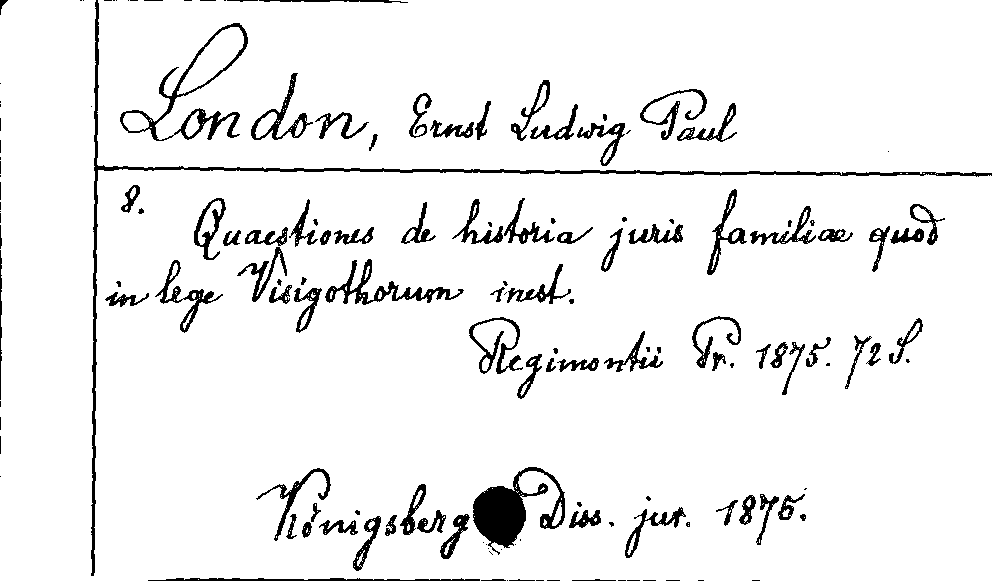 London, Ernst Ludwig Paul
8. Quaestiones de historia juris familiae quod
in lege Visigothorum inest.
Regimontii Pr. 1875. 72 S.
Königsberg Diss. jur. 1875.